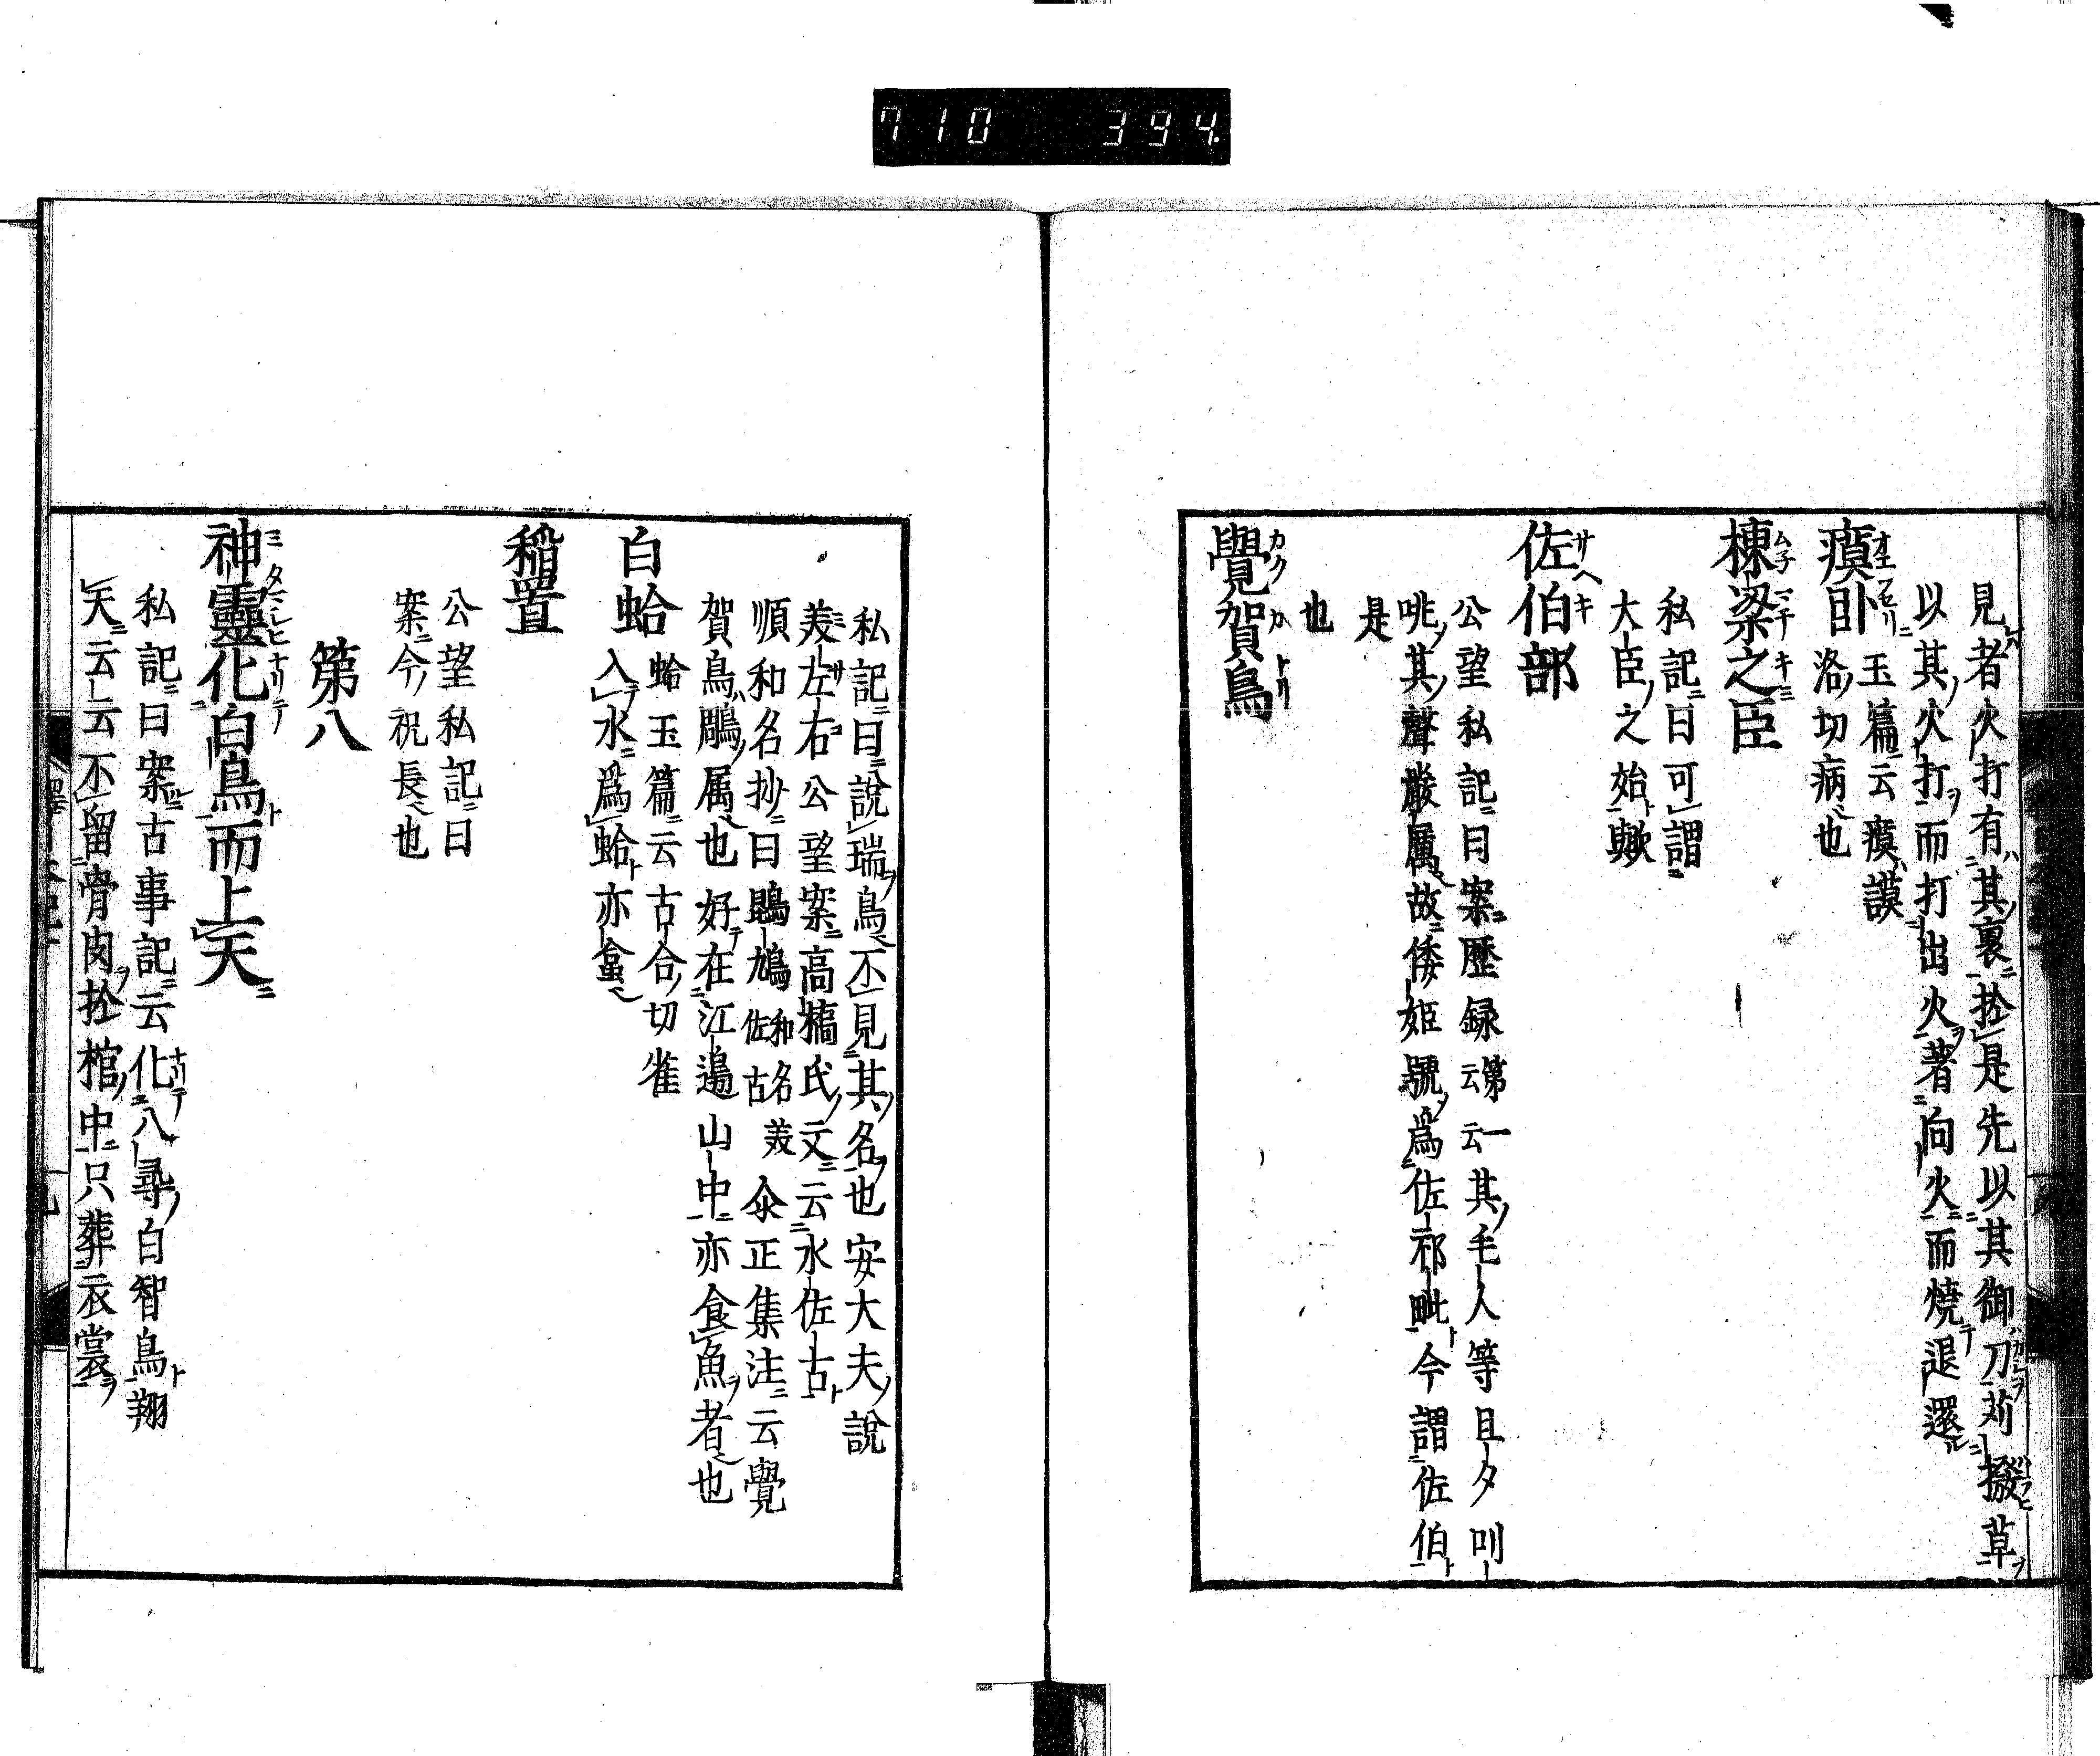 710 394
見者火打有其裏於是先以其御刀苅撥草
以其火打而打出火著向火而燒退還
瘼臥 玉篇云瘼謨
洛切病也
棟梁之臣
私記曰可謂
大臣之始歟
佐伯部
公望私記曰案歷録云第一云其毛人等且夕叫
咷其聲嚴厲故倭姬號爲佐祁毗今謂佐伯
是
也
覺賀鳥
私記曰說瑞鳥不見其名也安大夫說
美左右公望案高橋氏文云水佐古
順和名抄曰鵙鳩和名美佐古 正集注云覺
賀鳥鵰属也好在江邊山中亦食魚者也
白蛤 蛤玉篇云古合切雀
入水爲蛤亦
稻置
公望私記曰
案今祝長也
第八
神靈化白鳥而上天
私記曰案古事記云化八尋白智鳥翔
天云云不留骨肉於棺中只葬衣裳